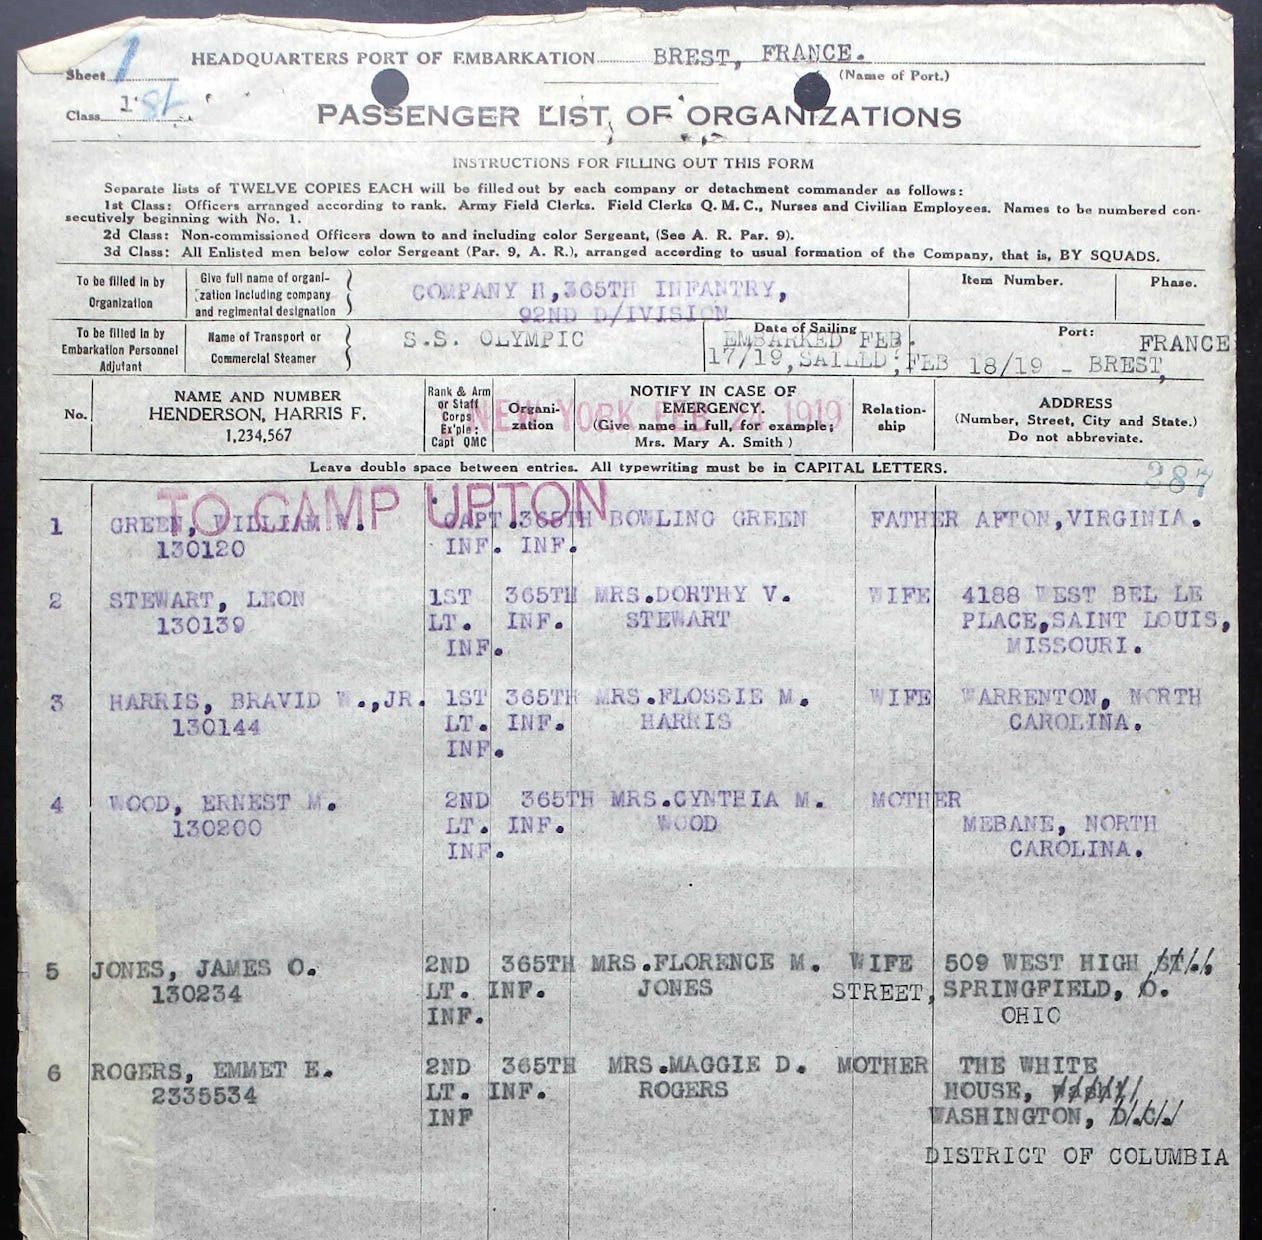 Sheet 1
HEADQUARTERS PORT OF EMBARKATION BREST, FRANCE.
(Name of Port.)
Class 1st
PASSENGER LIST OF ORGANIZATIONS
INSTRUCTIONS FOR FILLING OUT THIS FORM
Separate lists of TWELVE COPIES EACH will be filled out by each company or detachment commander as follows:
1st Class: Officers arranged according to rank. Army Field Clerks. Field Clerks Q. M. C., Nurses and Civilian Employees. Names to be numbered con-
secutively beginning with No. 1.
2d Class: Non-commissioned Officers down to and including color Sergeant, (See A. R. Par. 9).
3d Class: All Enlisted men below color Sergeant (Par. 9, A. R.), arranged according to usual formation of the Company, that is, BY SQUADS.
To be filled in by
Organization
Give full name of organi-
zation including company
and regimental designation
COMPANY H, 365TH INFANTRY,
92ND D/IVISION
Item Number.
Phase.
To be filled in by
Embarkation Personnel
Adjutant
Name of Transport or
Commercial Steamer
S.S. OLYMPIC
Date of Sailing
EMBARKED FEB.
17/19, SAILLD; FEB 18/19 - BREST,
Port:
FRANCE
No.
NAME AND NUMBER
HENDERSON, HARRIS F.
1,234,567
Rank & Arm
or Staff
Corps
Ex'ple:
Capt QMC
Organi-
zation
NOTIFY IN CASE OF
EMERGENCY.
(Give name in full, for example;
Mrs. Mary A. Smith )
Relation-
ship
ADDRESS
(Number, Street, City and State.)
Do not abbreviate.
NEW YORK FEB 24 1919
Leave double space between entries. All typewriting must be in CAPITAL LETTERS.
287
TO CAMP UPTON
1 GREEN, WILLIAM W. CAPT. 365TH BOWLING GREEN FATHER AFTON, VIRGINIA.
130120 INF. INF.
2 STEWART, LEON 1ST 365TH MRS. DORTHY V. WIFE 4188 WEST BEL LE
130139 LT. INF. STEWART PLACE, SAINT LOUIS,
INF. MISSOURI.
3 HARRIS, BRAVID W., JR. 1ST 365TH MRS. FLOSSIE M. WIFE WARRENTON, NORTH
130144 LT. INF. HARRIS CAROLINA.
INF.
4 WOOD, ERNEST M. 2ND 365TH MRS. CYNTHIA M. MOTHER
130200 LT. INF. WOOD MEBANE, NORTH
INF. CAROLINA.
5 JONES, JAMES O. 2ND 365TH MRS. FLORENCE M. WIFE 509 WEST HIGH ST..
130234 LT. INF. JONES STREET, SPRINGFIELD, O.
INF. OHIO
6 ROGERS, EMMET E. 2ND 365TH MRS. MAGGIE D. MOTHER THE WHITE
2335534 LT. INF. ROGERS HOUSE,
INF WASHINGTON, D.C.
DISTRICT OF COLUMBIA